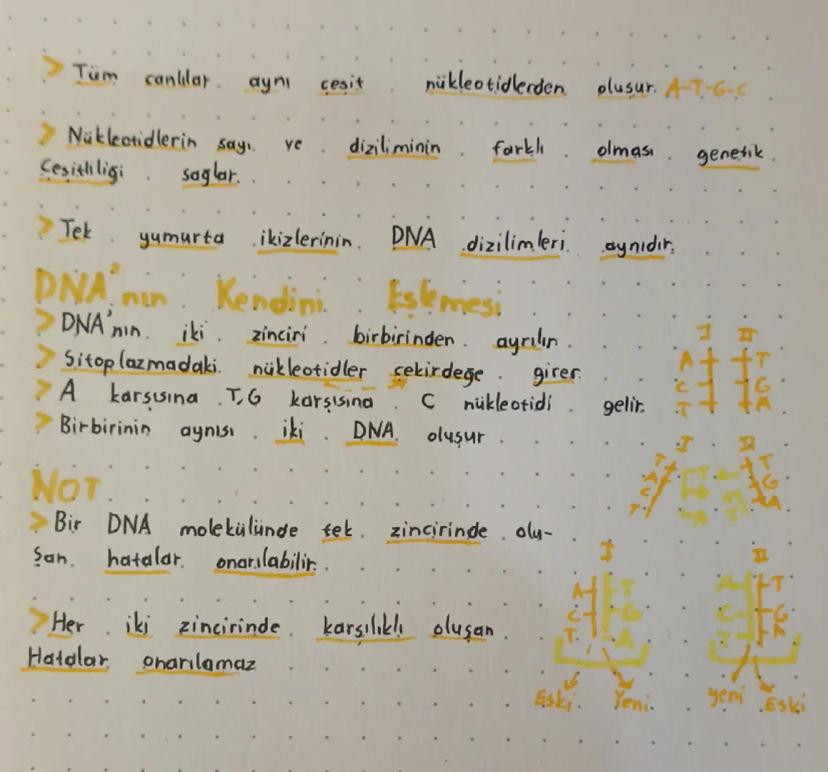 > Tüm canlılar aynı çeşit nükleotidlerden oluşur. A-T-G-C
> Nükleotidlerin sayı ve diziliminin farklı olması genetik
Çeşitliliği sağlar.
> Tek yumurta ikizlerinin DNA dizilimleri aynıdır.
DNA'nın Kendini Eşlemesi
> DNA'nın iki zinciri birbirinden ayrılır.
> Sitoplazmadaki nükleotidler çekirdeğe girer.
> A karşısına T, G karşısına C nükleotidi gelir.
> Birbirinin aynısı iki DNA oluşur.
I II
A T
C G
T A
I II
NOT
> Bir DNA molekülünde tek zincirinde olu-
şan hatalar onarılabilir.
> Her iki zincirinde karşılıklı oluşan
Hatalar onarılamaz
I II
A T A T
C G C G
T A T A
Eski Yeni yeni Eski